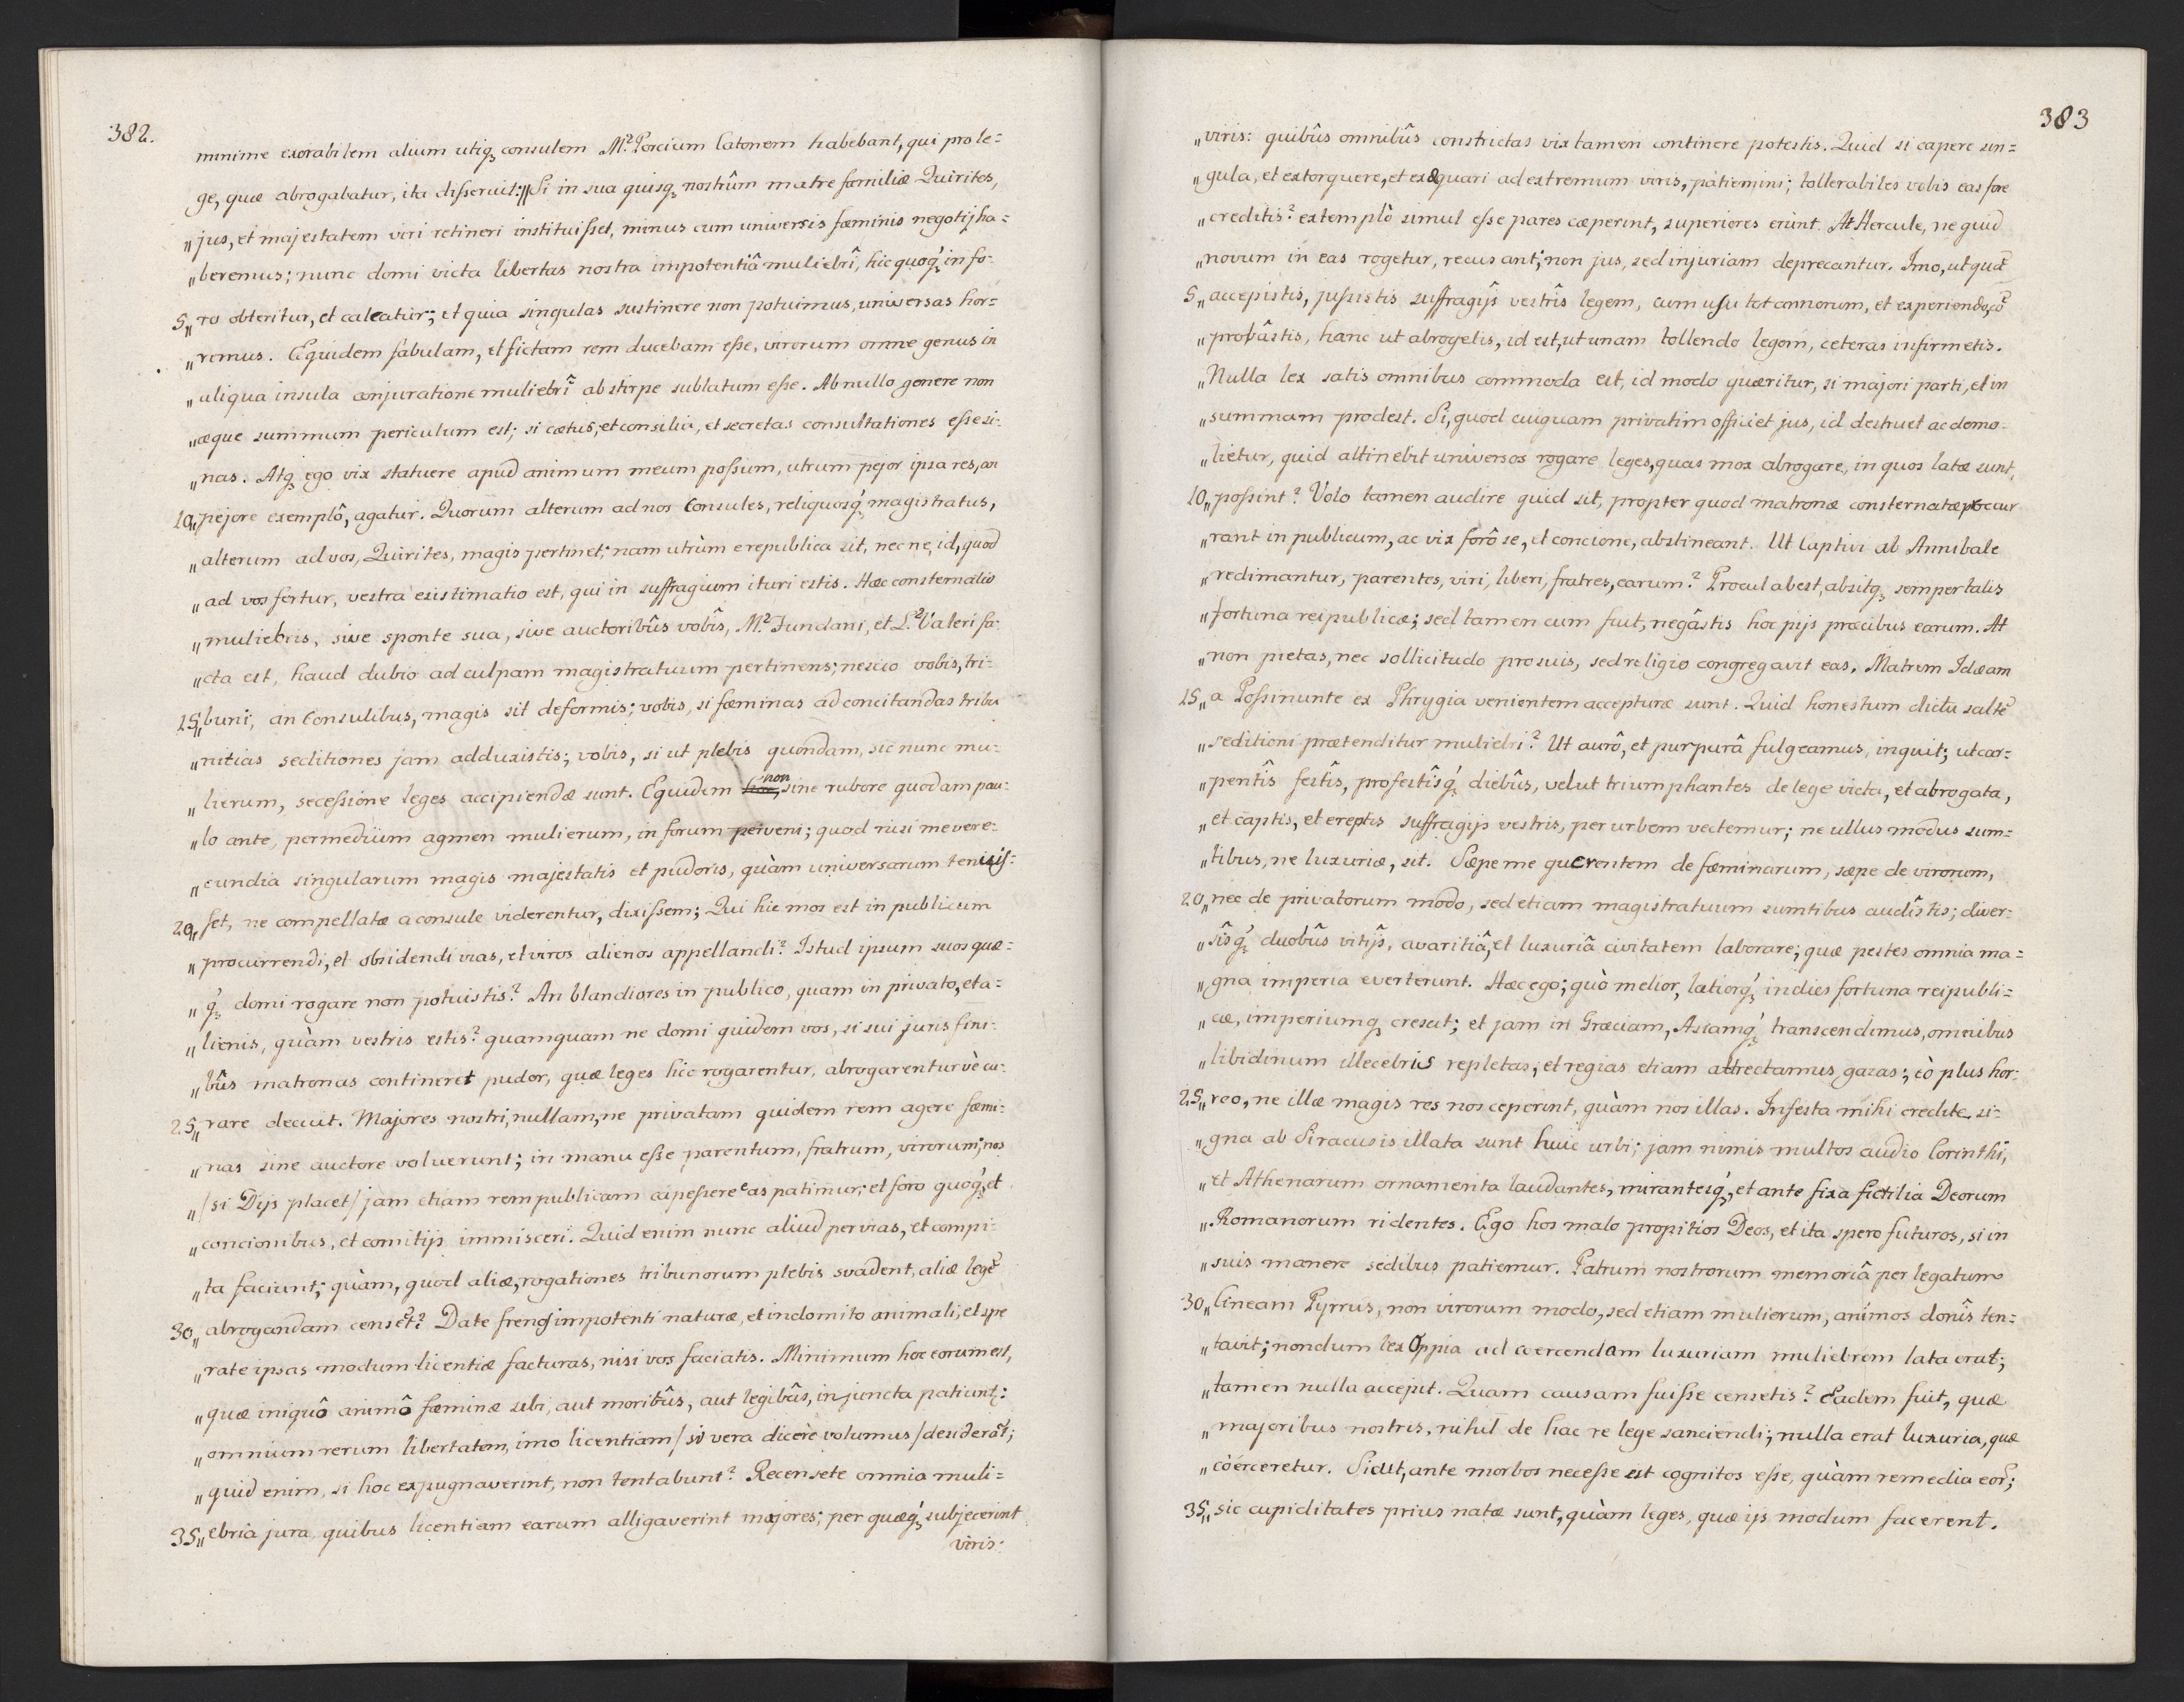 382.
minime exorabilem alium utiq₃ consulem M.² Porcium Catonem habebant, qui pro le=
ge, quæ abrogabatur, ita disseruit: Si in sua quisq₃ nostrûm matre familiæ Quirites,
„ jus, et majestatem viri retineri instituisset, minus cum universis fæminis negotij ha=
„ beremus; nunc domi victa libertas nostra impotentiâ muliebrî, hic quoq́₃ in fo-
5„ ro obteritur, et calcatur; et quia singulas sustinere non potuimus, universas hor=
„ remus. Equidem fabulam, et fictam rem ducebam esse, virorum omne genus in
„ aliqua insula conjuratione muliebrî ab stirpe sublatum esse. Ab nullo genere non
„ æque summum periculum est; si cætus, et consilia, et secretas consultationes esse si-
„ nas. Atq₃ ego vix statuere apud animum meum possum, utrum pejor ipsa res, an
10„ pejore exemplô, agatur. Quorum alterum ad nos Consules, reliquosq́₃ magistratus,
„ alterum ad vos, Quirites, magis pertinet; nam utrùm e republica sit, nec ne, id, quod
„ ad vos fertur, vestra existimatio est, qui in suffragium ituri estis. Hæc consternatio
„ muliebris, sive sponte sua, sive auctoribûs vobîs, M.² Fundani, et L.² Valeri fa-
„ cta est, haud dubio ad culpam magistratuum pertinens; nescio vobis, tri-
15„ buni, an Consulibus, magis sit deformis; vobis, si fæminas ad concitandas tribu
„ nitias seditiones jam adduxistis; vobis, si ut plebis quondam, sic nunc mu-
„ lierum, secessione leges accipiendæ sunt. Equidem non sine rubore quodam pau-
„ lo ante, per medium agmen mulierum, in forum perveni; quod nisi me vere-
„ cundia singularum magis majestatis et pudoris, quàm universarum tenuis=
20„ set, ne compellatæ a consule viderentur, dixissem; Qui hic mos est in publicum
„ procurrendi, et obsidendi vias, et viros alienos appellandi? Istud ipsum suos quæ=
„ q́₃ domi rogare non potuistis? An blandiores in publico, quam in privato, et a=
„ lienis, quàm vestris estis? quamquam ne domi quidem vos, si sui juris fini-
„ bûs matronas contineret pudor, quæ leges hîc rogarentur, abrogarenturvè cu-
25„ rare decuit. Majores nostri, nullam, ne privatam quidem rem agere fæmi-
„ nas sine auctore voluerunt; in manu esse parentum, fratrum, virorum; nos
„ /si Dijs placet/ jam etiam rempublicam capessere eas patimur; et foro quoq́₃, et
„ concionibus, et comitijs immisceri. Quid enim nunc aliud per vias, et compi-
„ ta faciunt; quàm, quod aliæ, rogationes tribunorum plebis svadent, aliæ legẽ
30„ abrogandam censẽt? Date frenos impotenti naturæ, et indomito animali, et spe
„ rate ipsas modum licentiæ facturas, nisi vos faciatis. Minimum hoc eorum est,
„ quæ iniquô animô fæminæ sibi, aut moribûs, aut legibûs, injuncta patiunt₂:
„ omnium rerum libertatem, imo licentiam /si vera dicere volumus/ desiderãt;
„ quid enim, si hoc expugnaverint, non tentabunt? Recensete omnia muli=
35„ ebria jura, quibus licentiam earum alligaverint majores; per quæq́₃ subjecerint
viris:
383
„ viris: quibûs omnibûs constrictas vix tamen continere potestis. Quid si capere sin=
„ gula, et extorquere, et exæquari ad extremum viris, patiemini; tollerabiles vobis eas fore
„ creditis? extemplò simul esse pares cæperint, superiores erunt. At Hercule, ne quid
„ novum in eas rogetur, recusant; non jus, sed injuriam deprecantur. Imo, ut quã
5„ accepistis, jussistis suffragijs vestrîs legem, cum usu tot annorum, et experiendo, cõ
„ probâstis, hanc ut abrogetis, id est, ut unam tollendo legem, ceteras infirmetis.
„ Nulla lex satis omnibus commoda est, id modo quæritur, si majori parti, et in
„ summam prodest. Si, quod cuiquam privatim officiet jus, id destruet ac demo-
„ lietur, quid attinebit universos rogare leges, quas mox abrogare, in quos latæ sunt,
10„ possint? Volo tamen audire quid sit, propter quod matronæ consternatæ procur
„ rant in publicum, ac vix forô se, et concione, abstineant. Ut Captivi ab Annibale
„ redimantur, parentes, viri, liberi, fratres, earum? Procul abest, absitq₃ semper talis
„ fortuna reipublicæ; sed tamen cum fuit, negâstis hoc pijs præcibus earum. At
„ non pietas, nec sollicitudo pro suis, sed religio congregavit eas. Matrem Idæam
15„ a Possinunte ex Phrygia venientem accepturæ sunt. Quid honestum dictu saltẽ
„ seditioni prætenditur muliebri? Ut aurô, et purpurâ fulgeamus, inquit; ut car-
„ pentîs festîs, profestîsq́₃ diebûs, velut triumphantes de lege victa, et abrogata,
„ et captis, et ereptis suffragijs vestris, per urbem vectemur; ne ullus modus sum=
„ tibus, ne luxuriæ, sit. Sæpe me querentem de fæminarum, sæpe de virorum,
20„ nec de privatorum modo, sed etiam magistratuum sumtibus audîstis; diver-
„ sîsq́₃ duobûs vitijs, avaritiâ, et luxuriâ civitatem laborare; quæ pestes omnia ma=
„ gna imperia everterunt. Hæc ego; quò melior, lætiorq́₃ indies fortuna reipubli=
„ cæ, imperiumq₃ crescit; et jam in Græciam, Asiamq́₃ transcendimus, omnibus
„ libidinum illecebris repletas; et regias etiam attrectamus gazas; eò plus hor-
25„ reo, ne illæ magis res nos ceperint, quàm nos illas. Infesta mihi credite si-
„ gna ab Siracusis illata sunt huic urbi; jam nimis multos audio Corinthi,
„ et Athenarum ornamenta laudantes, mirantesq́₃, et ante fixa fictilia Deorum
„ Romanorum ridentes. Ego hos malo propitios Deos, et ita spero futuros, si in
„ suis manere sedibus patiemur. Patrum nostrorum memoriâ per legatum
30„ Cineam Pyrrus, non virorum modo, sed etiam mulierum, animos donîs ten=
„ tavit; nondum lex Oppia ad coercendam luxuriam muliebrem lata erat;
„ tamen nulla accepit. Quam causam fuisse censetis? Eadem fuit, quæ
„ majoribus nostris, nihil de hac re lege sanciendi; nulla erat luxuria, quæ
„ coërceretur. Sicut, ante morbos necesse est cognitos esse, quàm remedia eor̃;
35„ sic cupiditates prius natæ sunt, quàm leges, quæ ijs modum facerent.